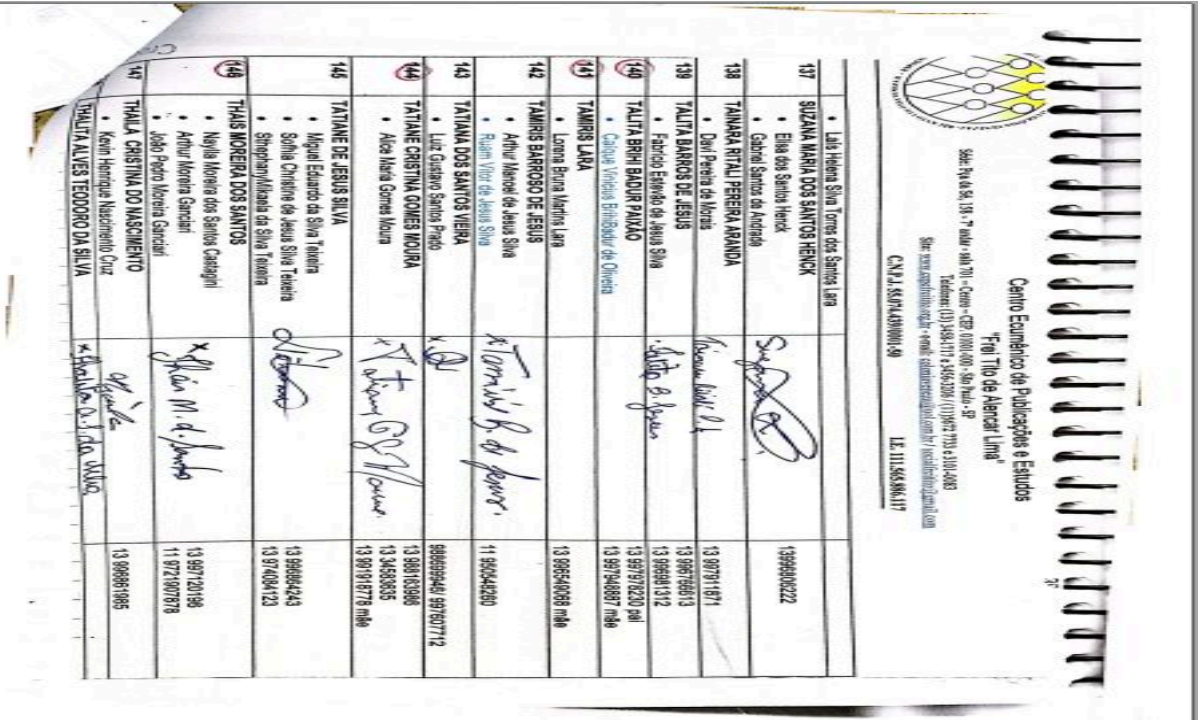 Centro Ecumênico de Publicações e Estudos
"Frei Tito de Alencar Lima"
C.N.P.J. 55.074.439/0001-50 I.E. 111.965.886.117
• Laís Helena Silva Torres dos Santos Lara
137 SUZANA MARIA DOS SANTOS HENCK
• Elisa dos Santos Henck
• Gabriel Santos de Andrade
13996006222
138 TAINARA RITALI PEREIRA ARANDA
• Davi Pereira de Morais
13 997911871
139 TALITA BARROS DE JESUS
• Fabrício Estevão de Jesus Silva
13 996766613
13 996981312
140 TALITA BRIHI BADUR PAIXÃO
• Caíque Vinícius BrihiBadur de Oliveira
13 997978230 pai
13 997940887 mãe
141 TAMIRIS LARA
• Lorena Bruna Martins Lara
13 996549068 mãe
142 TAMIRIS BARROSO DE JESUS
• Arthur Manoel de Jesus Silva
• Ruam Vitor de Jesus Silva
11 950548260
143 TATIANA DOS SANTOS VIEIRA
• Luiz Gustavo Santos Prado
x
98869946/ 997607712
144 TATIANE CRISTINA GOMES MOURA
• Alice Maria Gomes Moura
13 988163988
13 34583635
13 991918778 mãe
145 TATIANE DE JESUS SILVA
• Miguel Eduardo da Silva Teixeira
• Sofhia Christine de Jesus Silva Teixeira
• SthephanyMikaela da Silva Teixeira
13 996864243
13 974084123
146 THAIS MOREIRA DOS SANTOS
• Nayila Moreira dos Santos Castagini
• Arthur Moreira Ganciari
• João Pedro Moreira Ganciari
x Thais M. d. Santos
13 997120196
11 9721907878
147 THAILA CRISTINA DO NASCIMENTO
• Kevin Henrique Nascimento Cruz
13 996861965
THALITA ALVES TEODORO DA SILVA